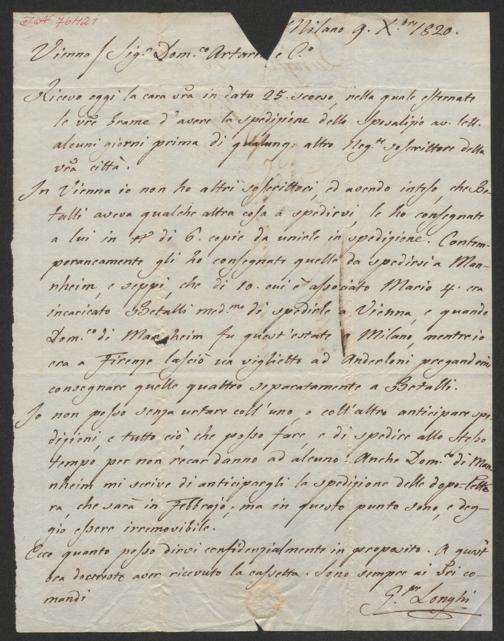 Milano 9. Xbre 1820.
Vienna / Sig.r Dom.co Artaria e C.o
Ricevo oggi la cara vrã in data 25 scorso, nella quale esternate
le vrẽ brame d'avere la spedizione dello sposalizio av. lett.
alcuni giorni prima di qualunqe altro Neg.te soscrittore della
vrã città.
In Vienna io non ho altri soscrittori, ed avendo inteso, che Be-
talli aveva qualche altra cosa a spedirvi, le ho consegnate
a lui in N.o di 6. copie da unirle in spedizione. Contem-
poraneamente gli ho consegnate quelle da spedirsi a Man-
nheim, e seppi, che di 10. cui è associato Mario 4. era
incaricato Betalli med.mo di spedirle a Vienna, e quando
Dom.co di Manheim fu quest'estate a Milano, mentre io
era a Firenze lasciò un viglietto ad Anderloni pregandomi
consegnare quelle quattro separatamente a Betalli.
Io non posso senza urtare coll'uno, o coll'altro anticipare spe-
dizioni, e tutto ciò che posso fare, è di spedire allo stesso
tempo per non recar danno ad alcuno. Anche Dom.co di Man-
nheim mi scrive di anticipargli la spedizione delle dopo lette-
ra, che sarà in Febbrajo; ma in questo punto sono, e deg-
gio essere irremovibile.
Ecco quanto posso dirvi confidenzialmente in proposito. A quest'
ora dovreste aver ricevuto la cassetta. Sono sempre ai Pri co-
mandi
G.pe Longhi